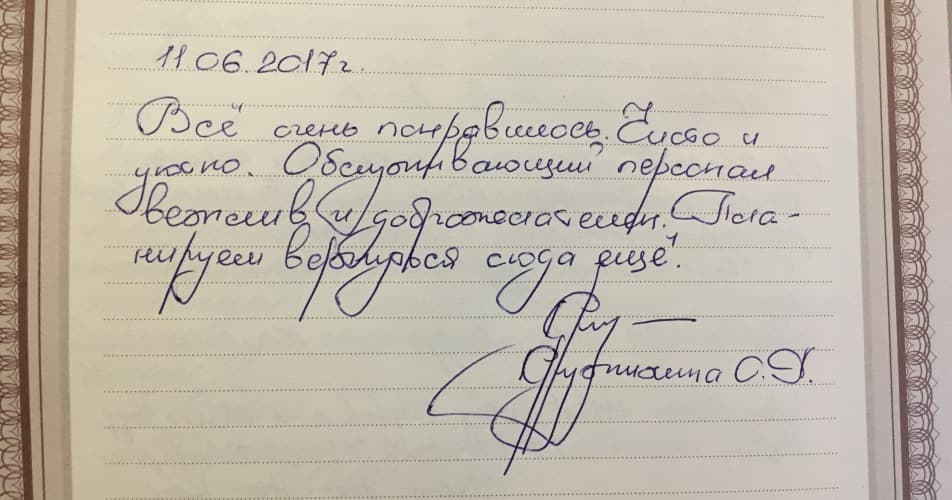 11.06.2017г.
Всё очень понравилось. Чисто и
уютно. Обслуживающий персонал
вежлив и доброжелателен. Пла-
нируем вернуться сюда ещё.